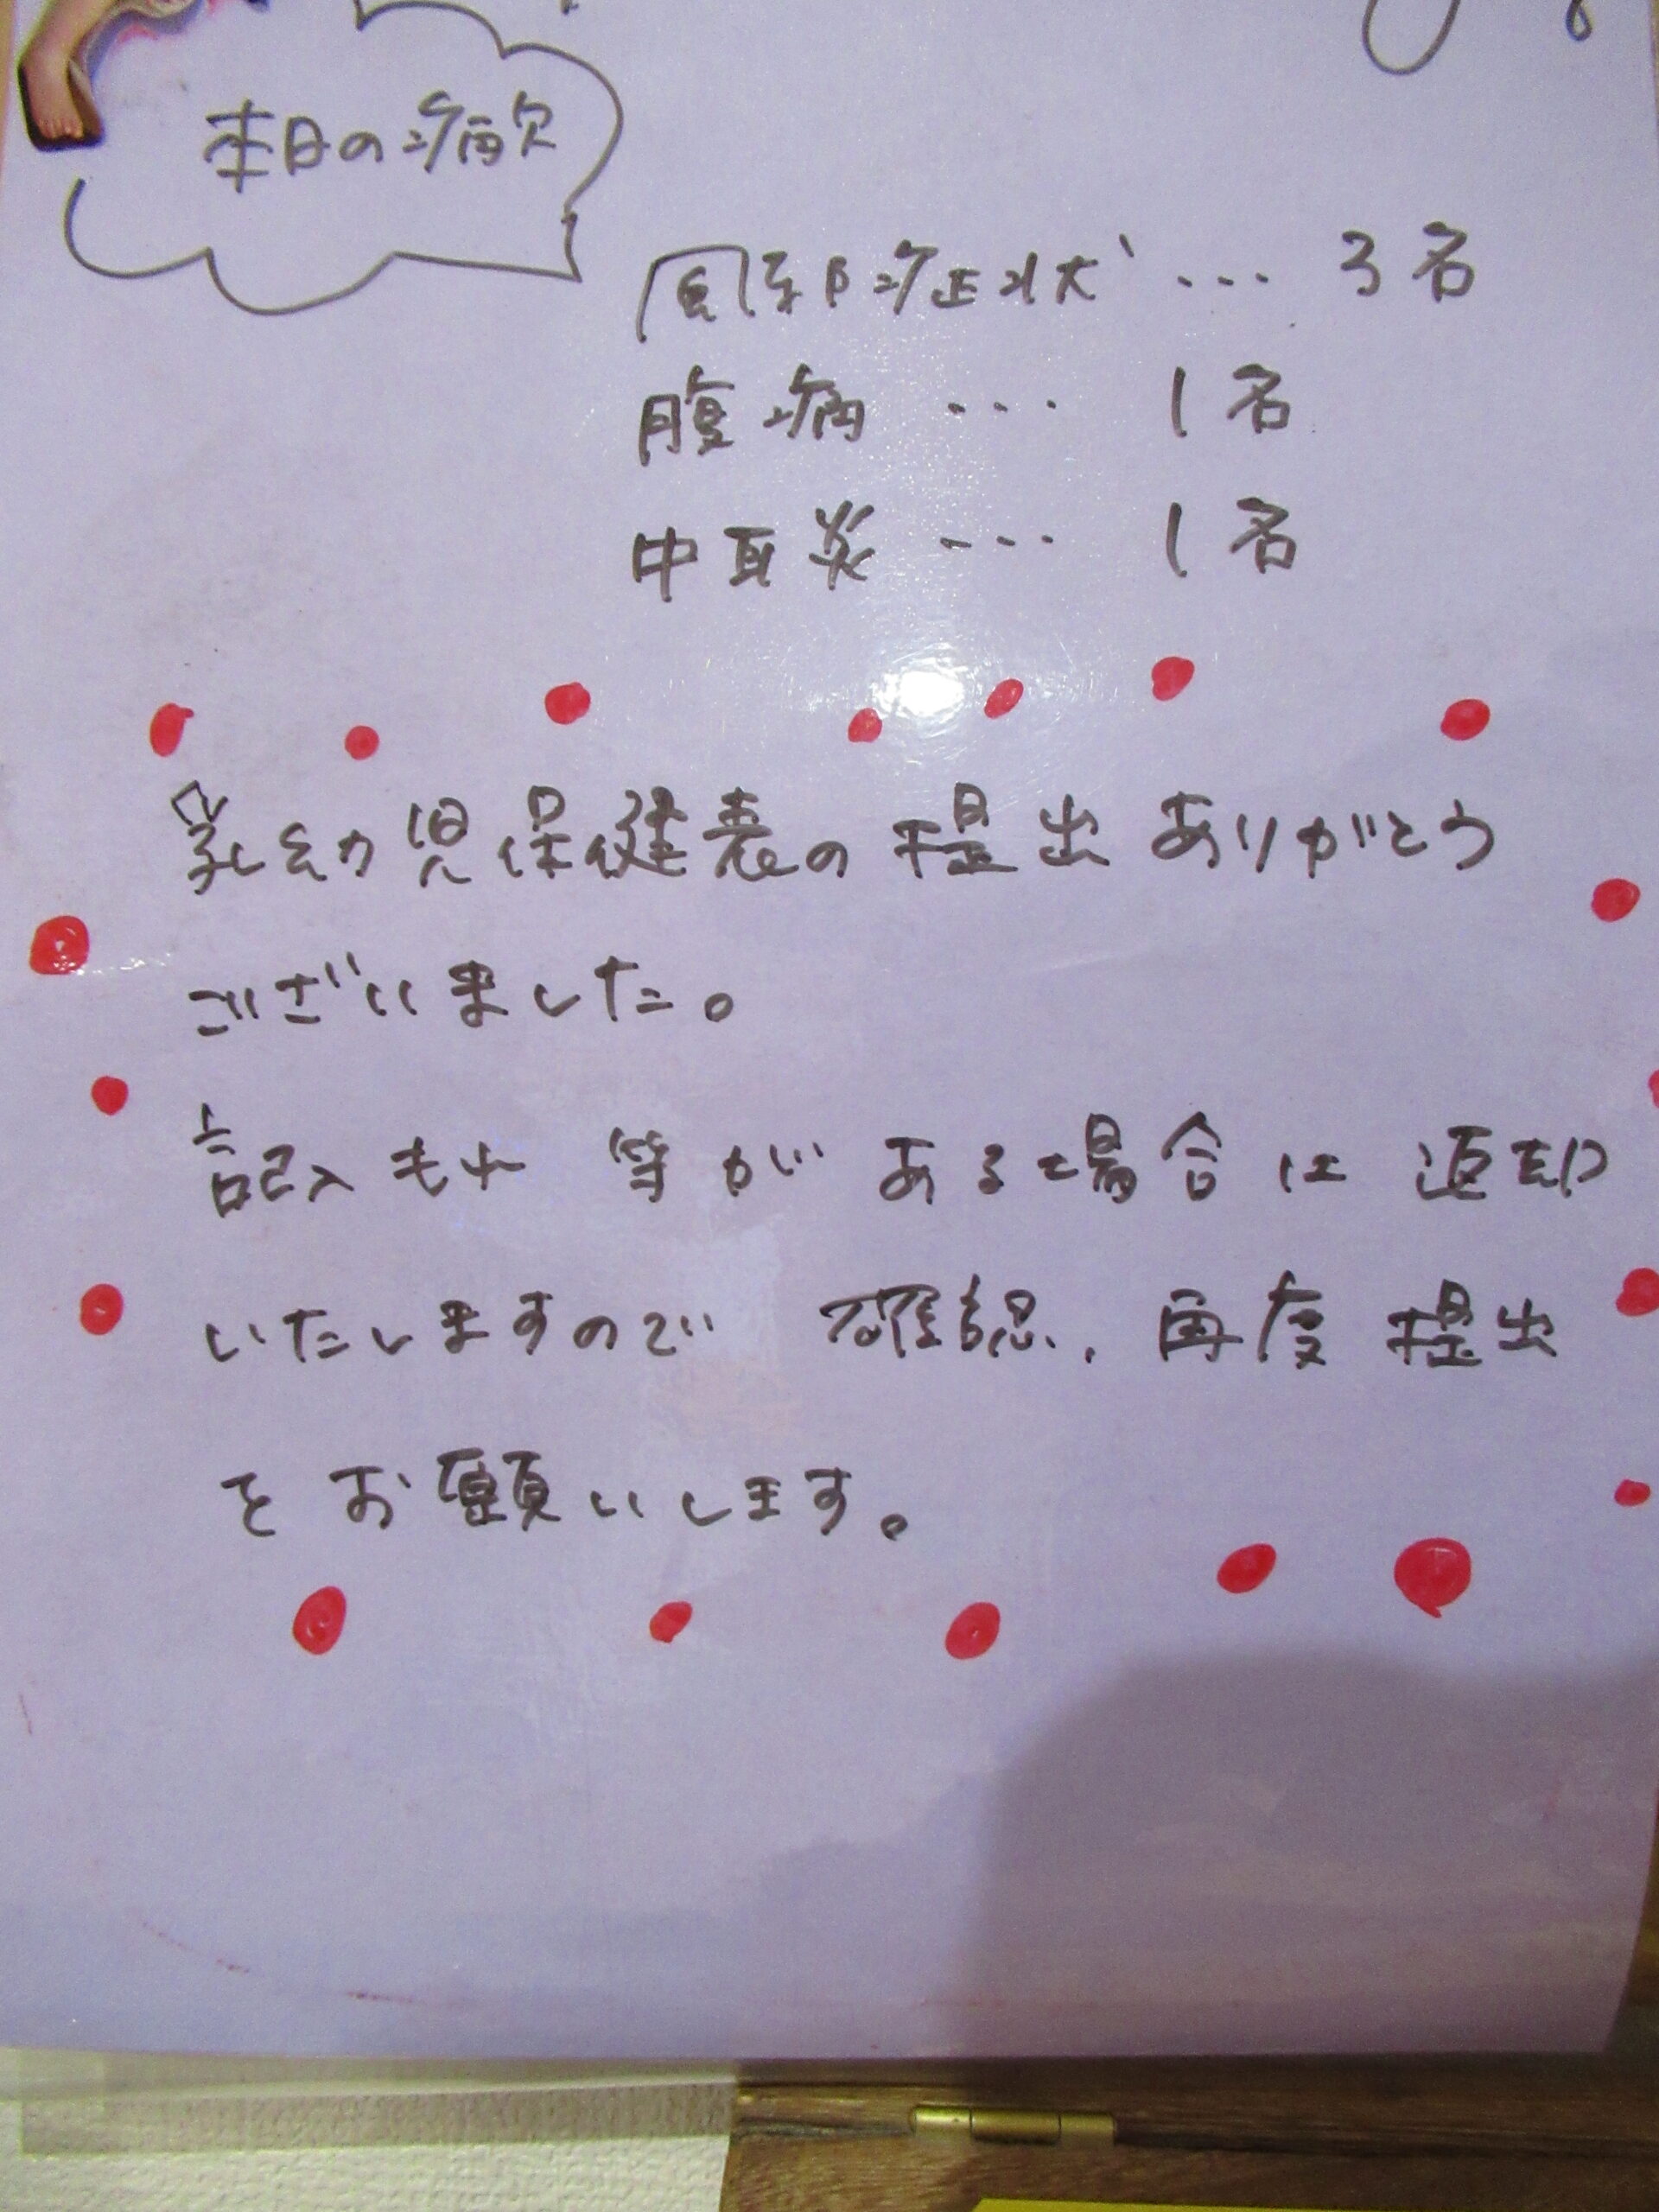 本日の病欠
風邪症状 … 3名
腹痛 … 1名
中耳炎 … 1名
乳幼児保健表の提出ありがとう
ございました。
記入もれ等がある場合は返却
いたしますので 確認、再度提出
をお願いします。